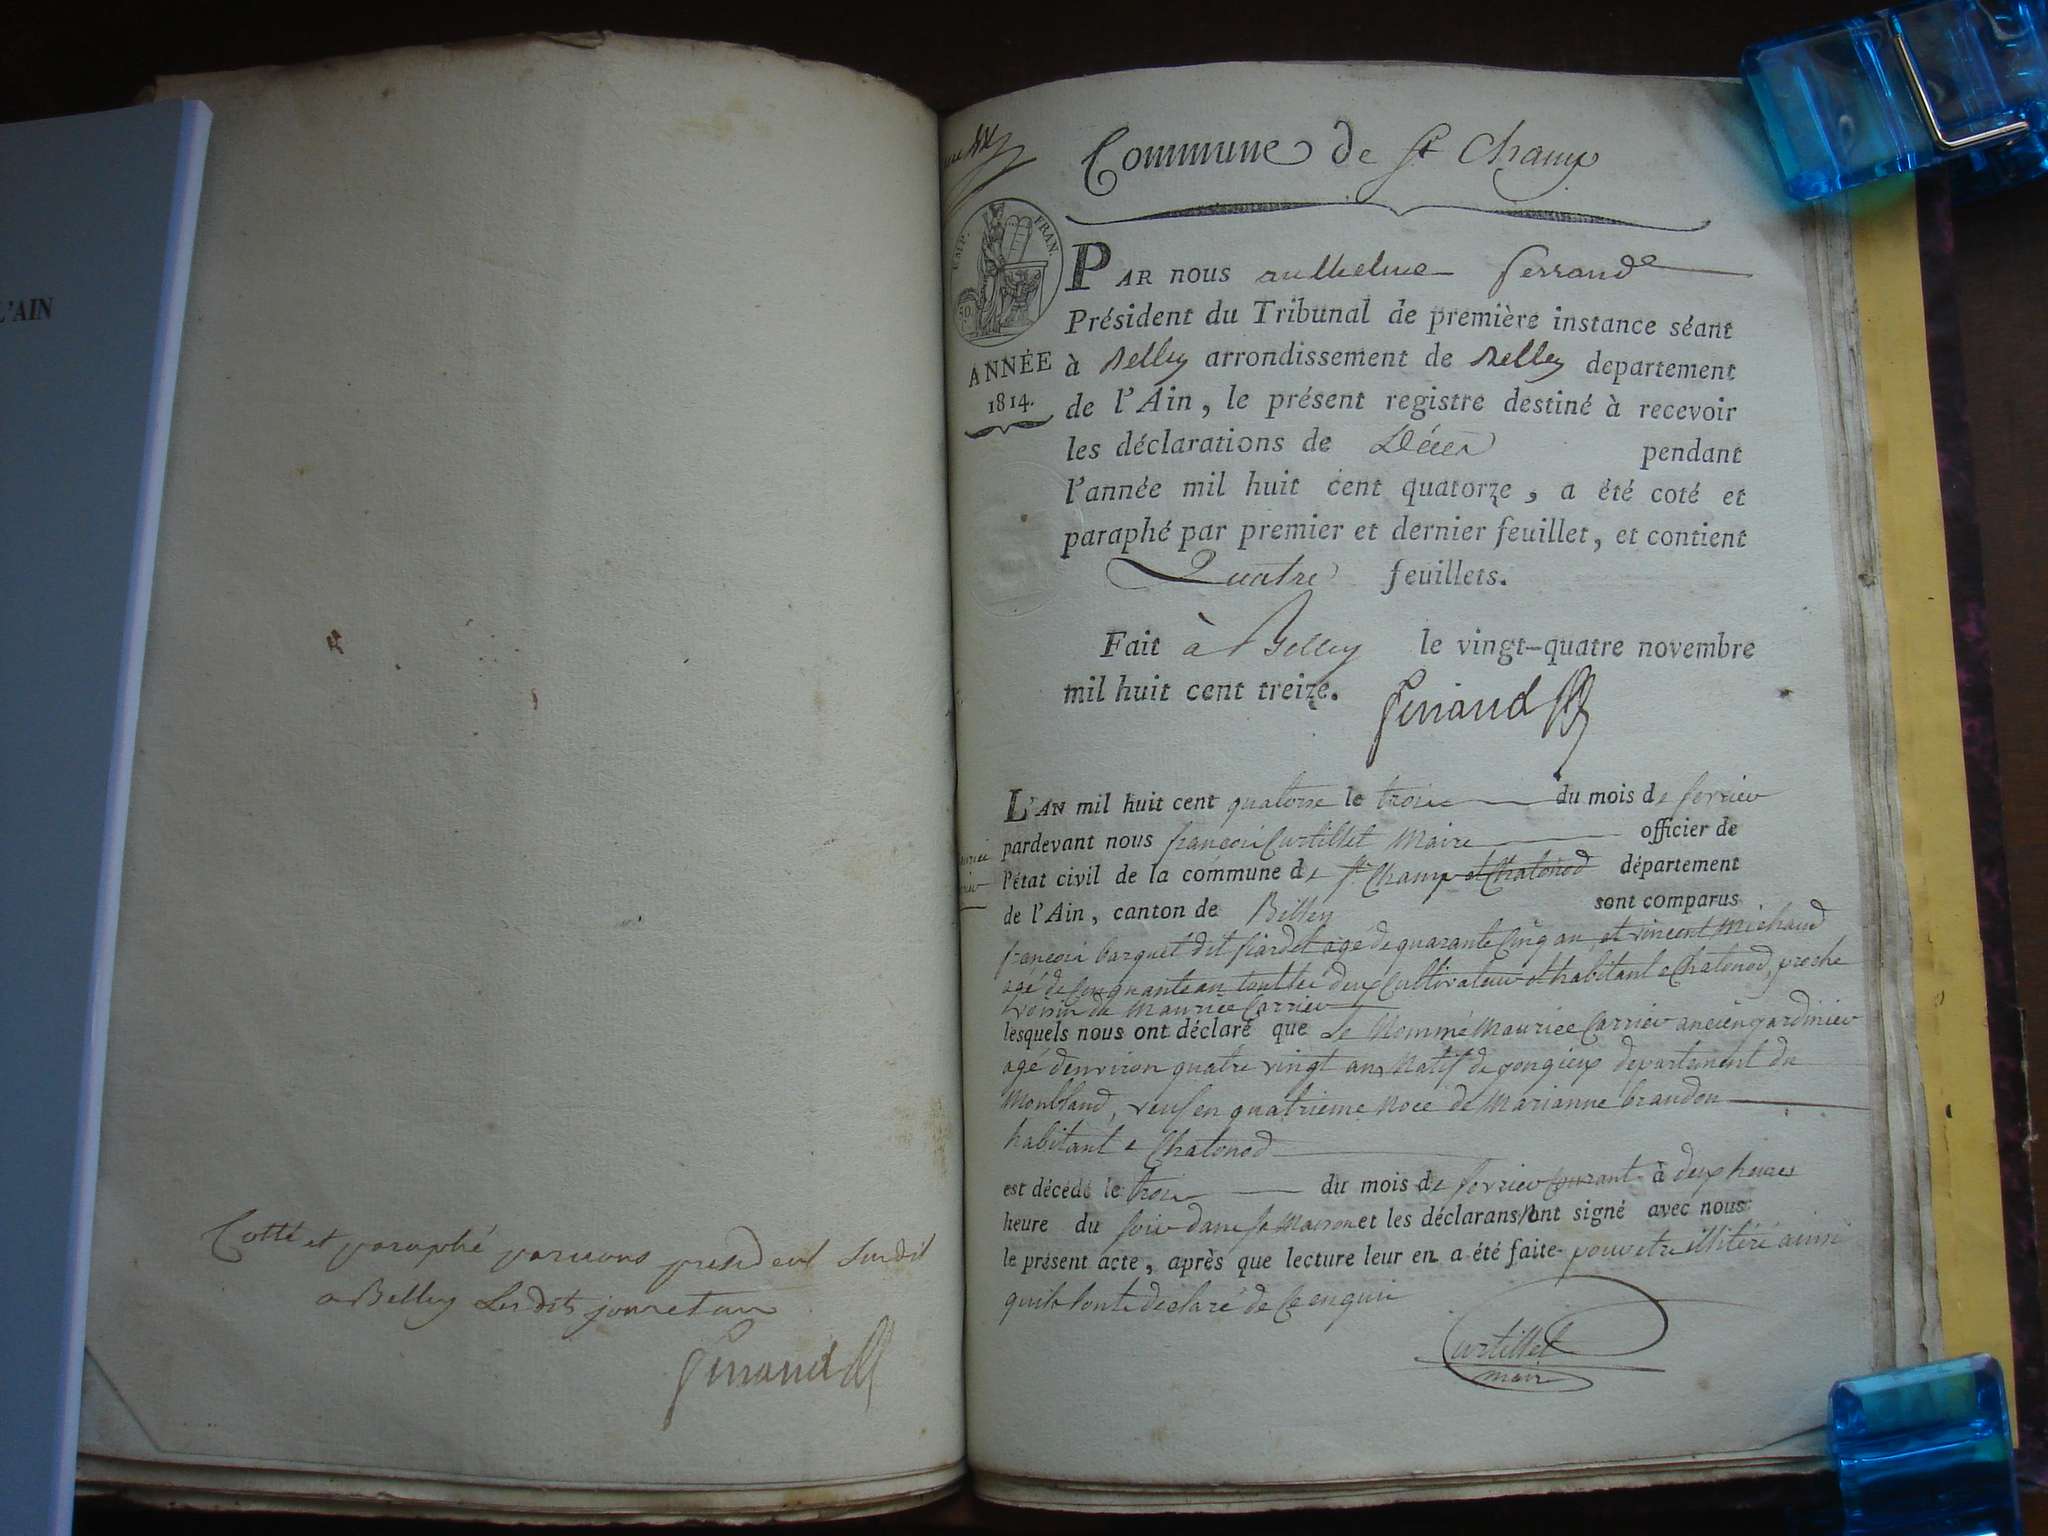 L'AIN
Cotté et paraphé par nous president susdit
a Belley les dits jour et an
ferrand
Commune de St Champ
EMP. FRAN.
50.
ANNÉE
1814.
PAR nous anthelme ferrand
Président du Tribunal de première instance séant
à Belley arrondissement de Belley departement
de l'Ain, le présent registre destiné à recevoir
les déclarations de Décès pendant
l'année mil huit cent quatorze, a été coté et
paraphé par premier et dernier feuillet, et contient
Quatre feuillets.
Fait à Belley le vingt-quatre novembre
mil huit cent treize.
ferrand
L'AN mil huit cent quatorse le trois du mois de fevrier
pardevant nous françois Curtillet Maire officier de
l'état civil de la commune de St Champ et Chatonod département
de l'Ain, canton de Belley sont comparus
françois barquet dit piardet agé de quarante Cinq an et vincent Michaud
agé de Cinquante an toutte deux Cultivateur et habitant a Chatonod, proche
voisin de Maurice Carrier
lesquels nous ont déclaré que le Nommé Maurice Carrier ancien jardinier
agé denviron quatre vingt ans Natif de yongieux departement du
Montbland, veuf en quatrieme Noce de Marianne brandon
habitant a Chatonod
est décédé le trois du mois de fevrier Courant à deux heures
heure du soir dans sa Maison et les déclarans n'ont signé avec nous
le présent acte, après que lecture leur en a été faite pour etre illitéré ainsi
quils lont declaré de Ce enquis
Curtillet
maire